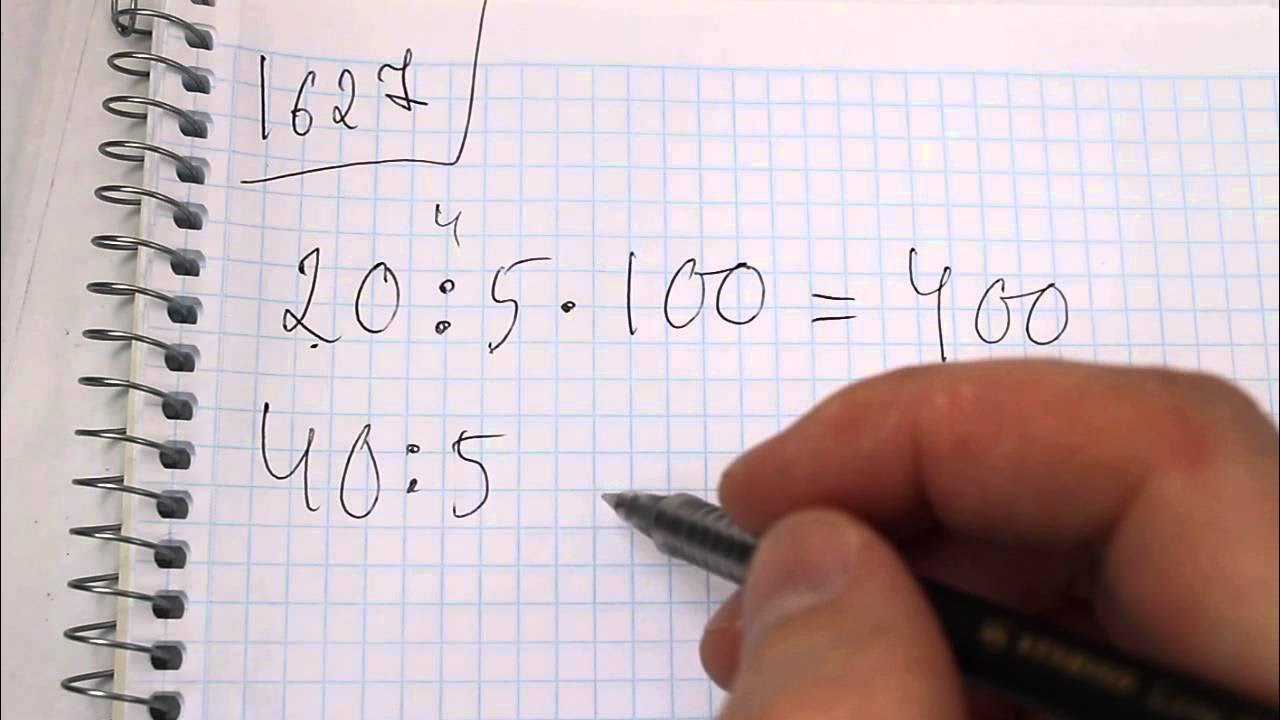 1627
4
20:5·100=400
40:5